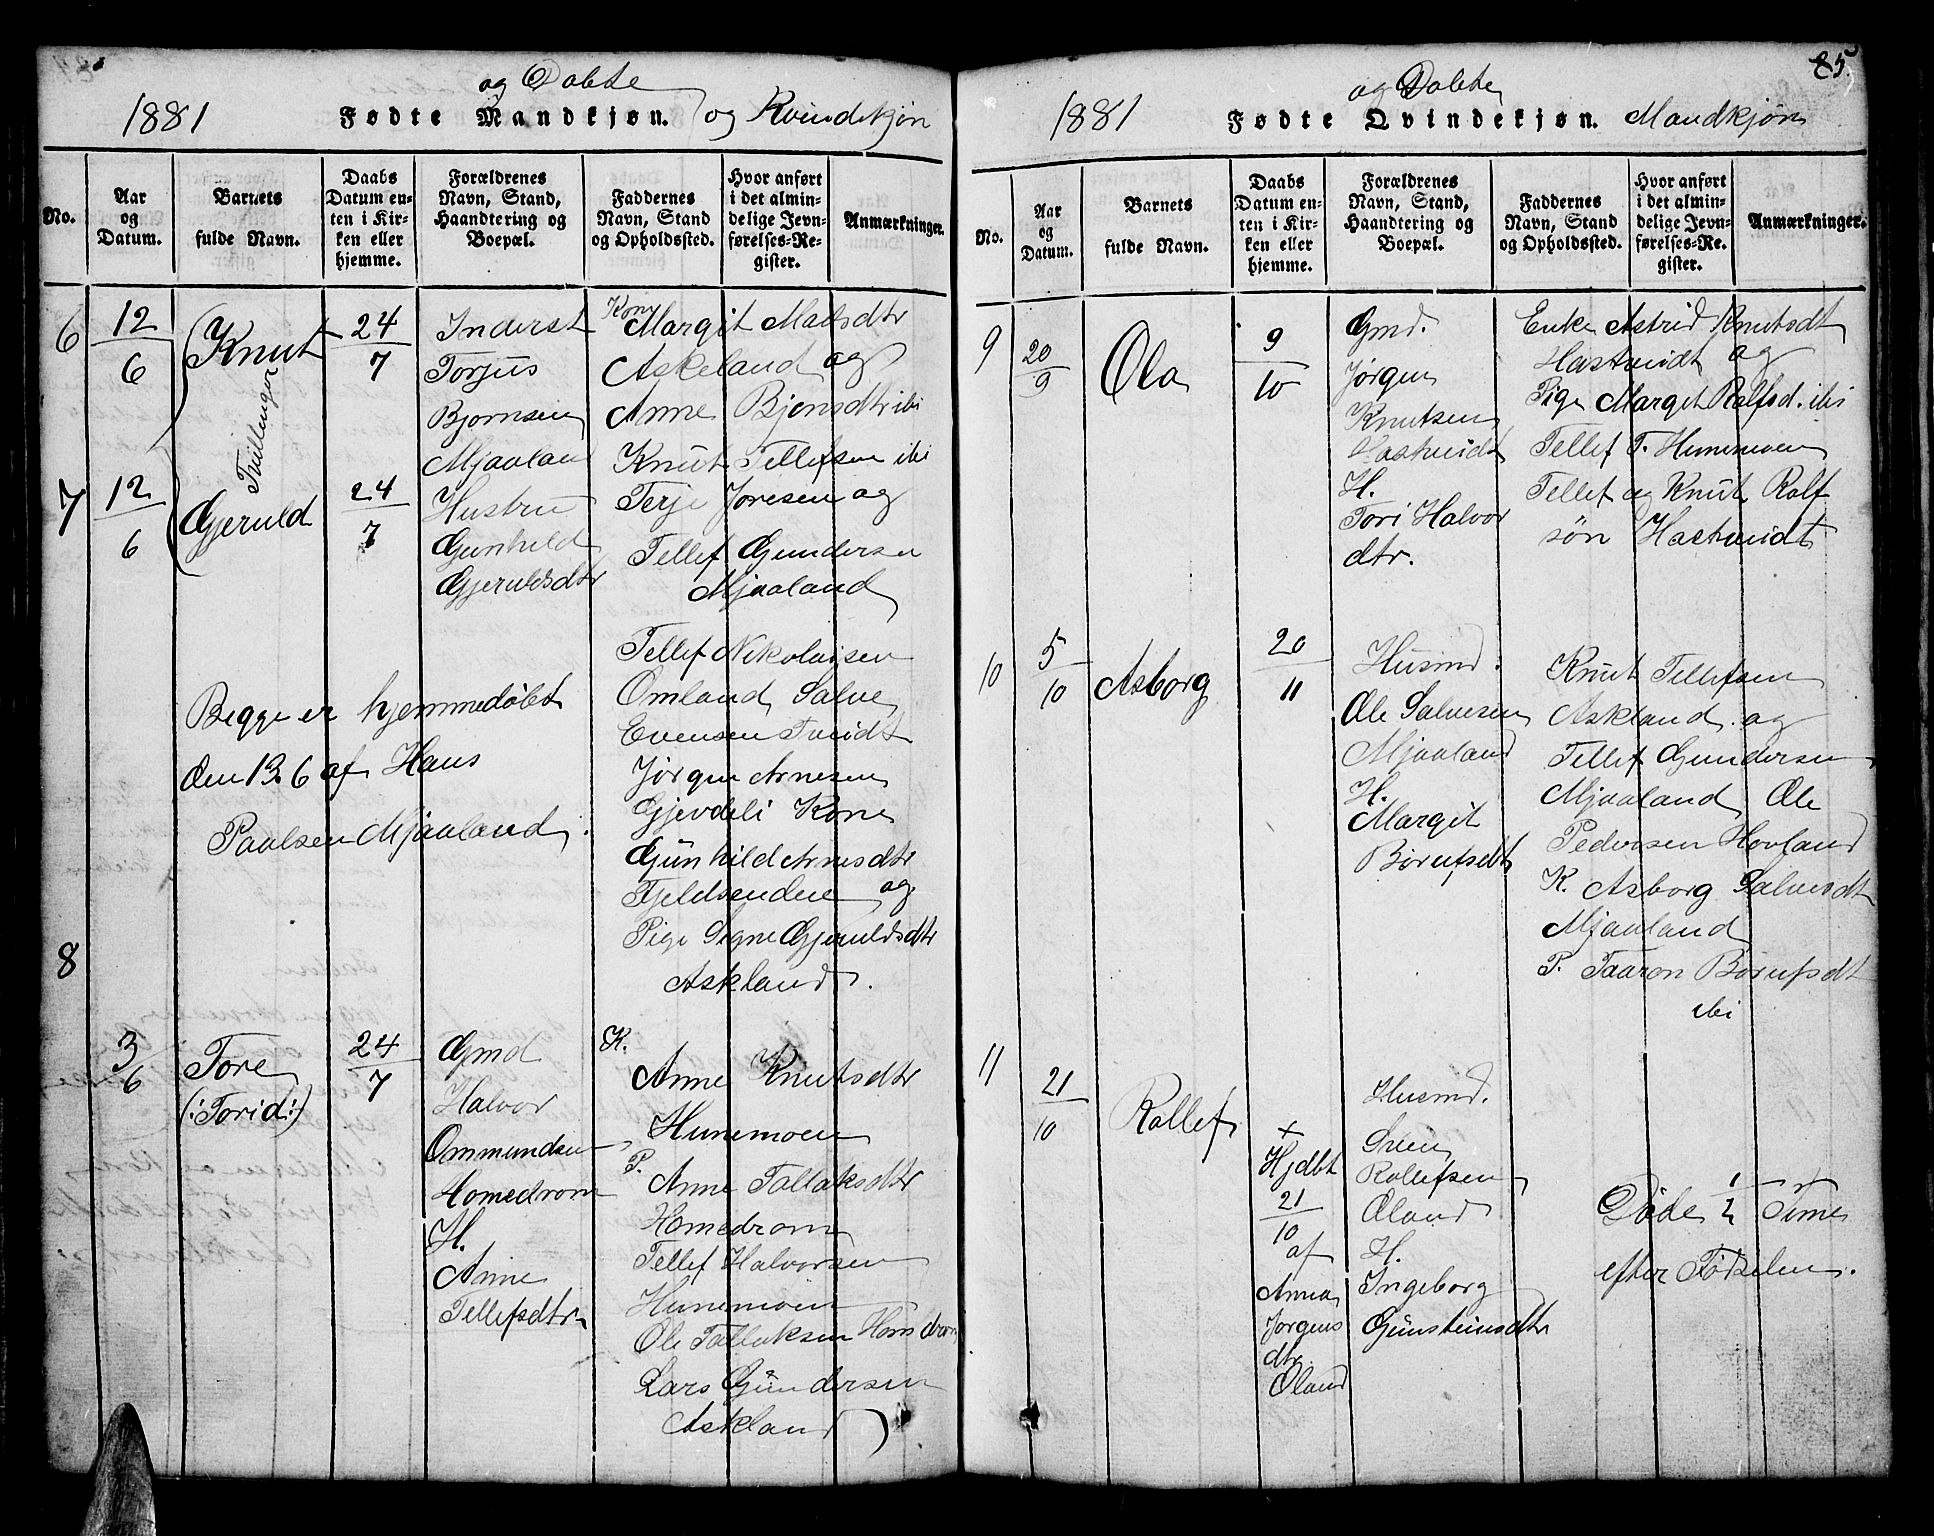 og Dobte
1881 Fødte Mandkjøn. og Kvindekjøn
No.
Aar og Datum.
Barnets fulde Navn.
Daabs Datum enten i Kirken eller hjemme.
Forældrenes Navn, Stand, Haandtering og Boepæl.
Faddernes Navn, Stand og Opholdssted.
Hvor anført i det almindelige Jevnførelses-Register.
Anmærkninger.
6
12/6
Knut
24/7
Inderst
Torjus
Bjornsen
Mjaaland
Hustru
Gunhild
Gjeruldsdtr
Kone Margit Madsdtr
Askeland og
Anne Bjensdtr ibi
Knut Tellefsen ibi
Terje Joresen og
Tellef Gundersen
Mjaaland
Tvillinger
7
12/6
Gjeruld
24/7
Tellef Nikolaisen
Omland Salve
Evensen Tveidt
Jørgen Arnesen
Gjevdeli Kone
Gunhild Arnesdtr
Fjeldsendene og
Pige Signe Gjeruldsdtr
Askland.
Begge er hjemmedøbt
den 13.6 af Hans
Paalsen Mjaaland.
8
3/6
Tore
(:Torid:)
24/7
Gmd
Halvor
Ommundsen
Homedrom
H.
Anne
Tellefsdtr
K.
Anne Knutsdtr
Hunemoen
P.
Anne Tallaksdtr
Homedrom
Tellef Halvorsen
Hunemoen
Ole Tallaksen Homdrom
Lars Gundersen
Askland
85.
og Dobte
1881 Fødte Qvindekjøn. Mandkjøn
No.
Aar og Datum.
Barnets fulde Navn.
Daabs Datum enten i Kirken eller hjemme.
Forældrenes Navn, Stand, Haandtering og Boepæl.
Faddernes Navn, Stand og Opholdssted.
Hvor anført i det almindelige Jevnførelses-Register.
Anmærkninger.
9
20/9
Ola
9/10
Gmd.
Jørgen
Knutsen
Hastveidt
H.
Tori Halvor
dtr.
Enke Astrid Knutsdt
Hastveidt og
Pige Marget Rolfsd. ibi
Tellef T. Hunemoen
Tellef og Knut Rolf
søn Hastveidt
10
5/10
Asborg
20/11
Husmd.
Ole Salvesen
Mjaaland
H.
Margit
Børufsdt
Knut Tellefsen
Askland og
Tellef Gundersen
Mjaaland Ole
Pedersen Hovland
K. Asborg Salvesdt
Mjaaland
P. Taaron Børufsdt
ibi
11
21/10
Rollef
+
Hjdbt
21/10
af
Anna
Jørgens
dtr
Øland
Husmd.
Sven
Rollefsen
Øland
H.
Ingeborg
Gunsteinsdtr
Døde 1/2 Time
efter Fødselen.